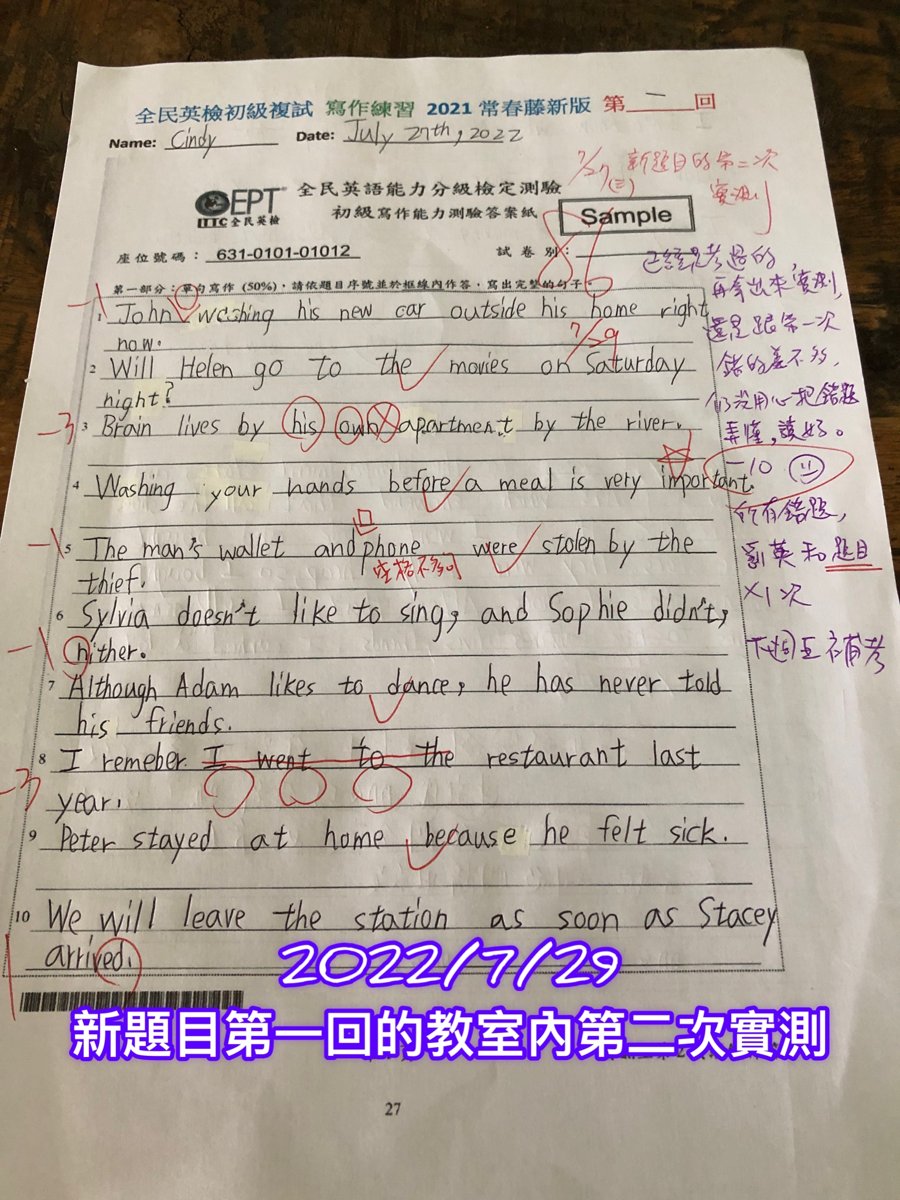 全民英檢初級複試 寫作練習 2021 常春藤新版 第 一 回
Name: Cindy Date: July 27th, 2022
7/27 (三) 新題目的第二次
實測
GEPT 全民英語能力分級檢定測驗
LTTC 全民英檢 初級寫作能力測驗答案紙
Sample
座位號碼: 631-0101-01012 試卷別:
86
7/29
第一部分:單句寫作 (50%),請依題目序號並於框線內作答,寫出完整的句子。
-1
1 John washing his new car outside his home right
now.
2 Will Helen go to the movies on Saturday
night?
-3
3 Brain lives by his own apartment by the river.
4 Washing your hands before a meal is very important.
-1
5 The man's wallet and phone were stolen by the
thief.
空格不多可
6 Sylvia doesn't like to sing, and Sophie didn't,
-1
nither.
7 Although Adam likes to dance, he has never told
his friends.
8 I remeber I went to the restaurant last
-3
year.
9 Peter stayed at home because he felt sick.
10 We will leave the station as soon as Stacey
arrived.
已經是考過的,
再拿出來實測,
還是跟第一次
錯的差不多,
仍沒用心把錯題
弄懂,讀好。
-10
所有錯題,
劉英和題目
×1次
下週五補考
2022/7/29
新題目第一回的教室內第二次實測
27